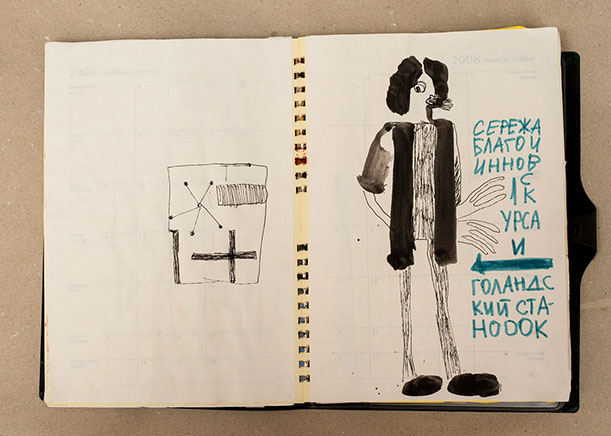 2008 Сентябрь September
2008 Октябрь October
СЕРЕЖА
БЛАГО И
ИННОВ
1С
К
УРСА
И
ГОЛАНДС
КИЙ СТА-
НОООК